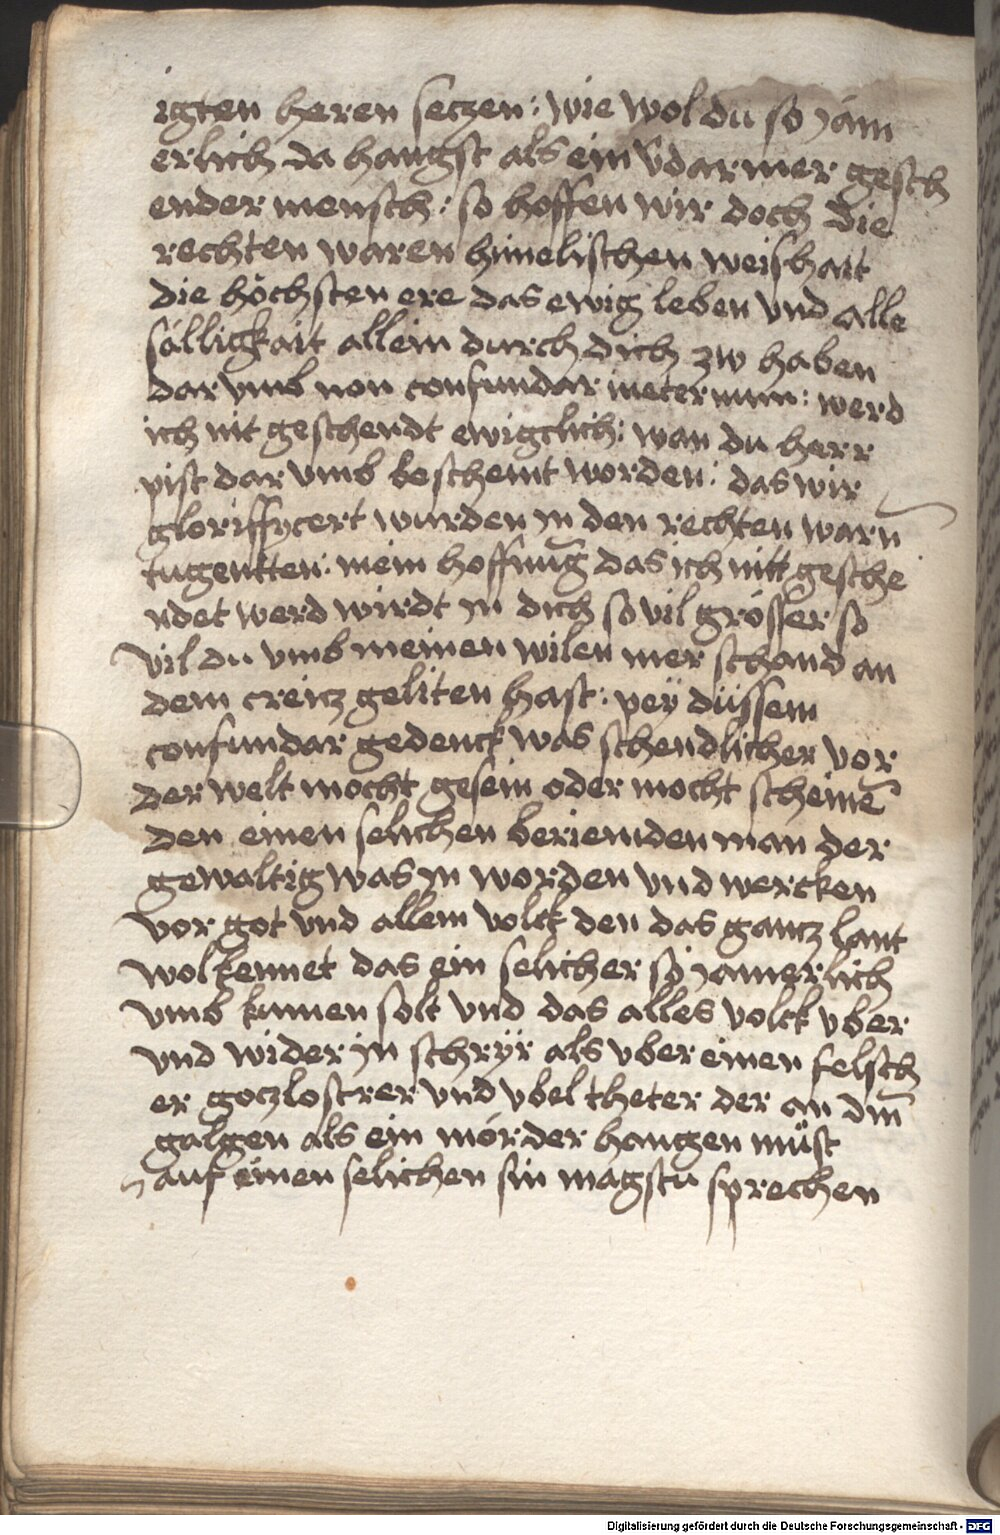 igten heren seczen: wie wol du so jäm
erlich da hangst als ein vdarmer gesch
ender mensch: so hoffen wir doch die
rechten waren himelischen weishait
die höchsten ere das ewig leben vnd alle
sälligkait allein durch dich zw haben
dar vmb non confundar ineternum: werd
ich nit geschendt ewigclich: wan du herr
pist dar vmb beschemt worden: das wir
gloriffycert wurden in den rechten warn̄
tugentten: mein hoffnūg das ich nitt gesche
ndet werd wirdt in dich so vil grösser so
vil du vmb meinen wilen mer schand an
dem creicz geliten hast: pey düssem
confundar gedenck was schendlicher vor
der welt mocht gesein oder mocht scheinē
den einen selichen beriemden man der
gewaltig was in worden vnd wercken
vor got vnd allem volck den das gancz lant
wol kennet das ein selicher so jamerlich
vmb kumen solt vnd das alles volck vber
vnd wider in schryr als vber einen felsch
er goczlostrer vnd vbeltheter der an dm̄
galgen als ein mörder hangen müst
auf einen selichen sin magstu sprechen
Digitalisierung gefördert durch die Deutsche Forschungsgemeinschaft - DFG